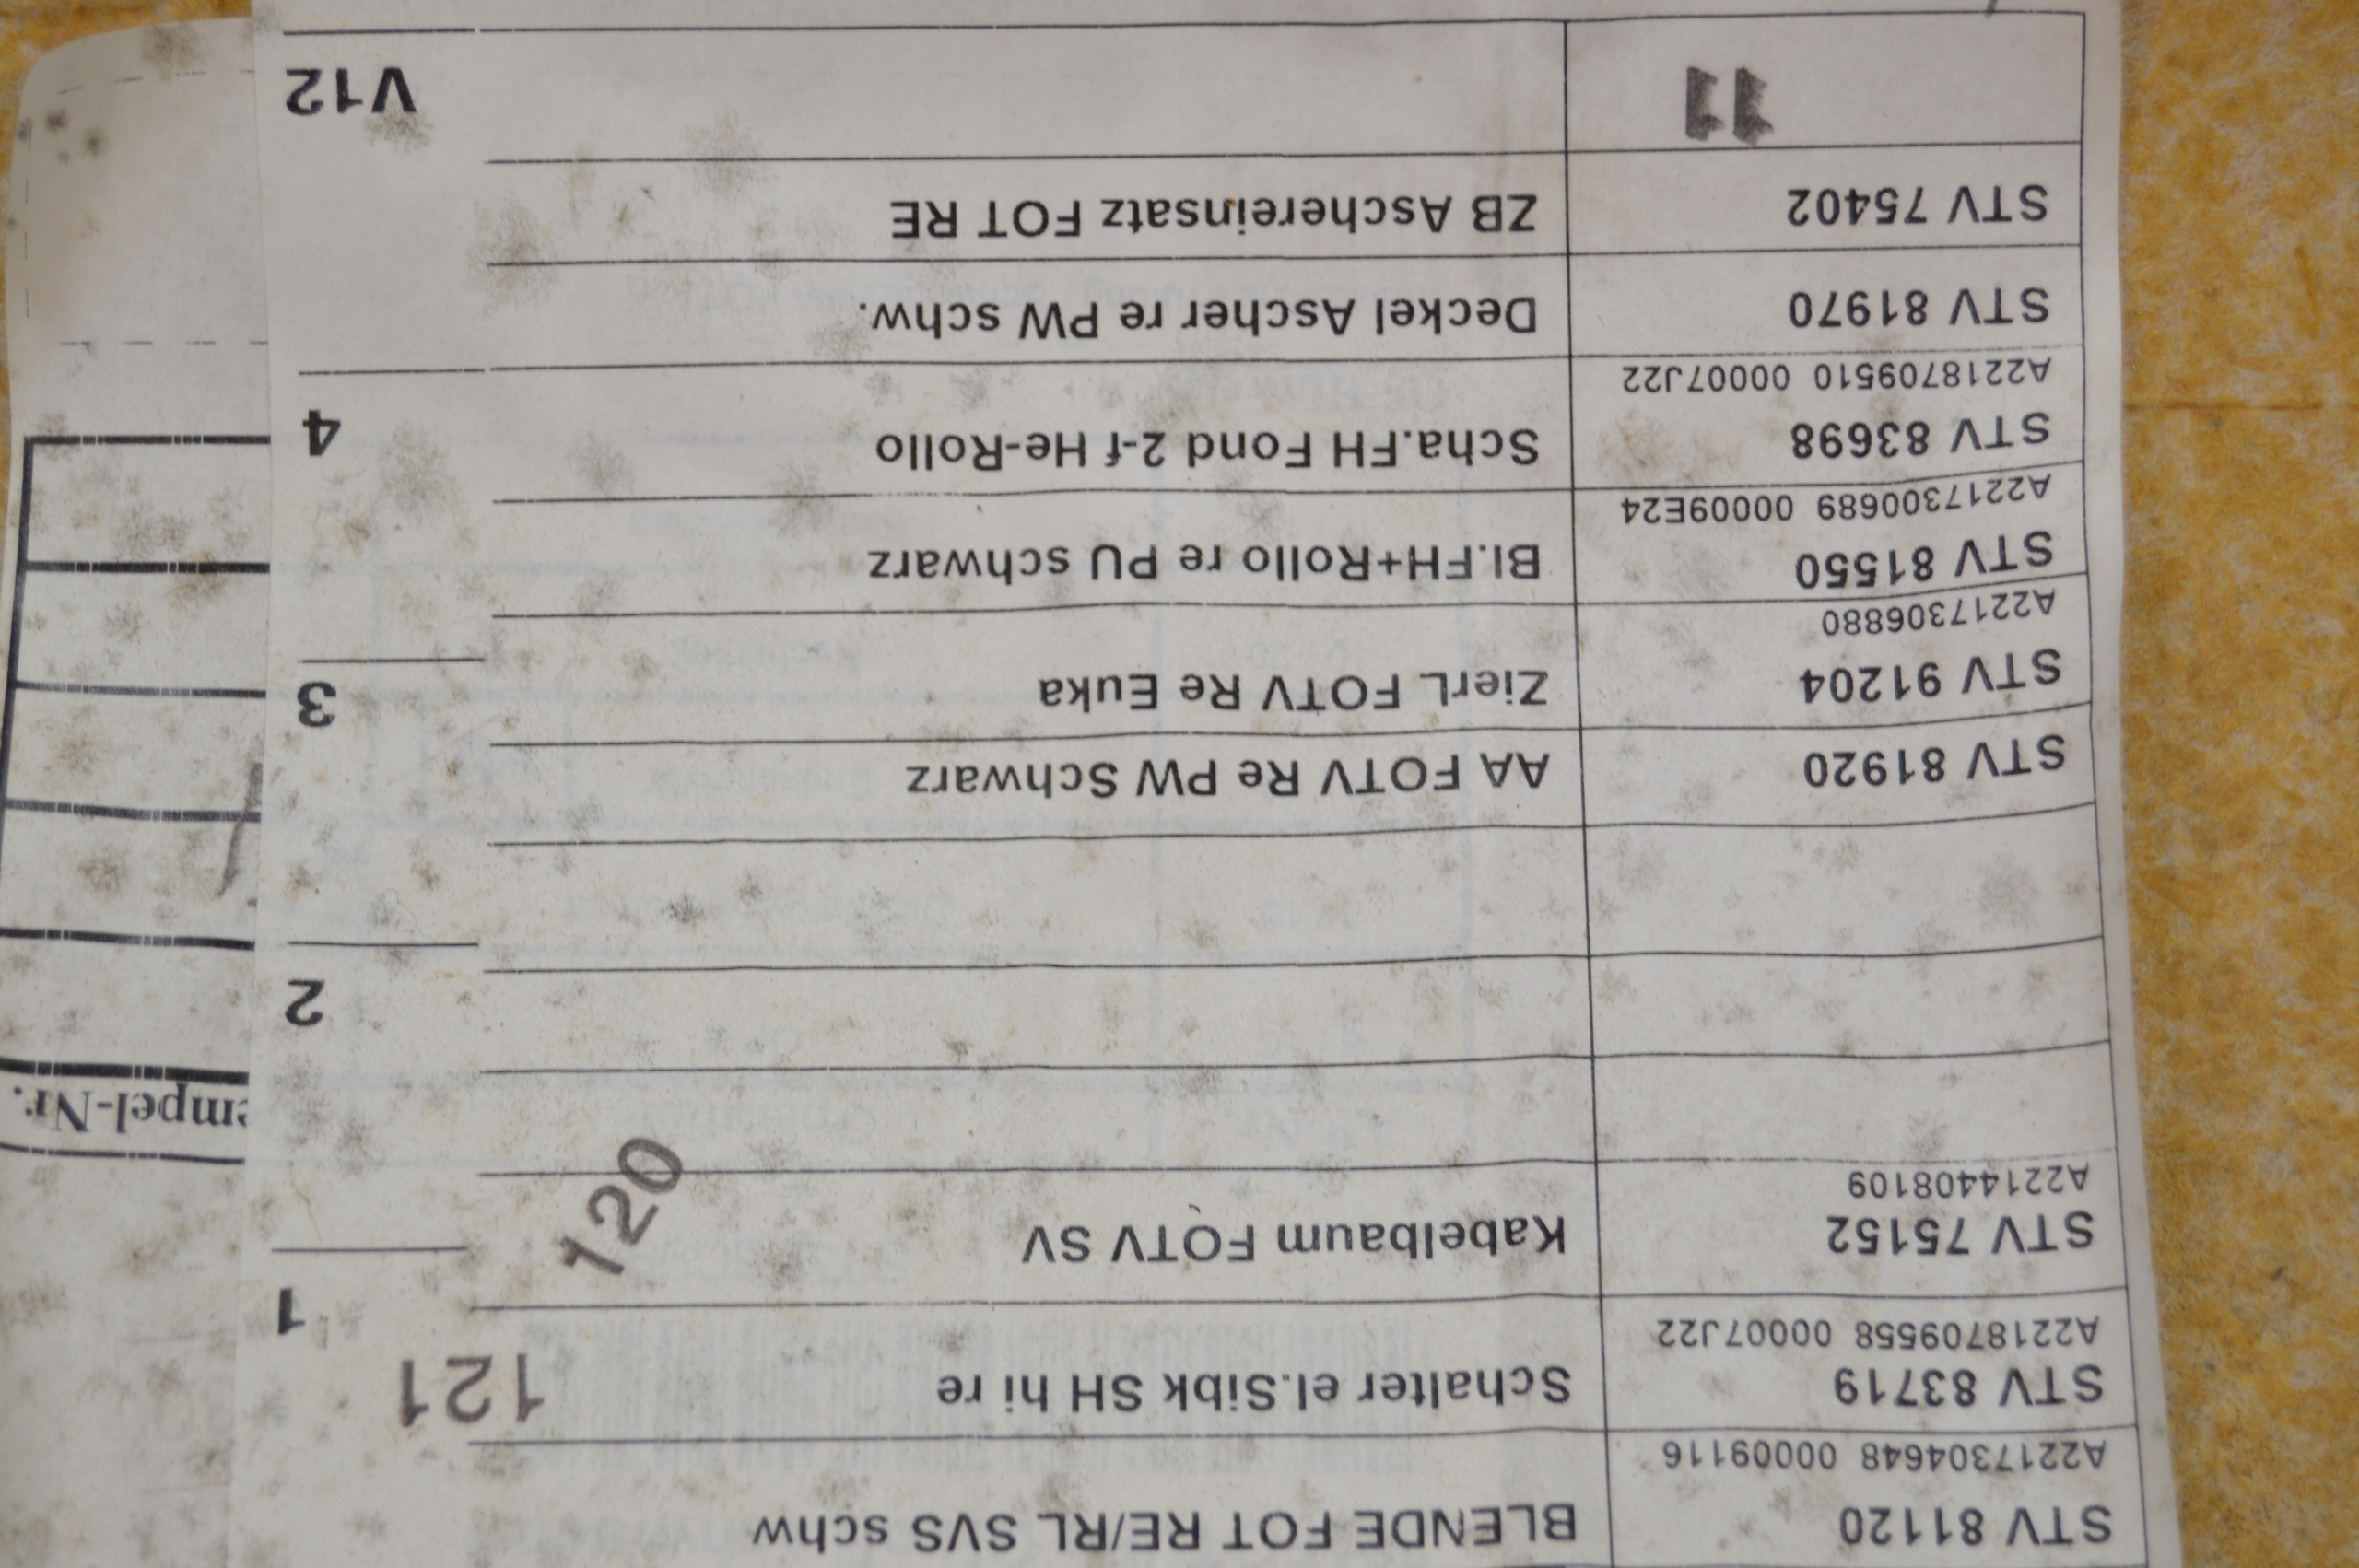 STV 81120 BLENDE FOT RE/RL SVS schw
A2217304648 00009116
STV 83719 Schalter el.Sibk SH hi re 121
A2218709558 00007J22
1
STV 75152 Kabelbaum FOTV SV 120
A2214408109
empel-Nr.
2
STV 81920 AA FOTV Re PW Schwarz
3
STV 91204 ZierL FOTV Re Euka
A2217306880
STV 81550 Bl.FH+Rollo re PU schwarz
A2217300689 00009E24
STV 83698 Scha.FH Fond 2-f He-Rollo 4
A2218709510 00007J22
STV 81970 Deckel Ascher re PW schw.
STV 75402 ZB Aschereinsatz FOT RE
11 V12